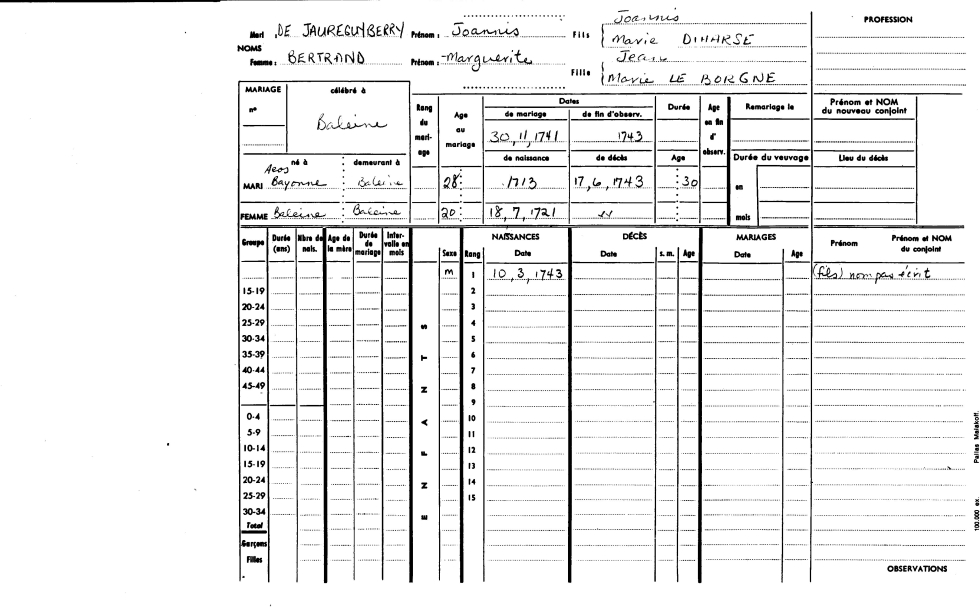 Joannis
PROFESSION
Mari DE JAUREGUYBERRY Prénom : Joannis Fils Marie DIHARSE
NOMS
Jean
Femme : BERTRAND Prénom : -Marguerite
Fille Marie LE BORGNE
MARIAGE célébré à
n° Baleine
Rang du mari-age
Age au mariage
Dates
de mariage de fin d'observ.
30, 11, 1741 1743
de naissance de décès
Durée
Age
Age en fin d' observ.
Remariage le
Durée du veuvage
en
mois
Prénom et NOM du nouveau conjoint
Lieu du décès
né à demeurant à
MARI Bayonne Baleine 28 1713 17, 6, 1743 30
FEMME Baleine Baleine 20 18, 7, 1721
Groupe Durée (ans) Nbre de nais. Age de la mère Durée de mariage Inter-valle en mois
NAISSANCES DÉCÈS MARIAGES
Sexe Rang Date Date s. m. Age Date Age Prénom Prénom et NOM du conjoint
m 1 10, 3, 1743 (fils) nom pas écrit
15-19 2
20-24 3
25-29 4
30-34 5
35-39 6
40-44 7
45-49 8
9
0-4 10
5-9 11
10-14 12
15-19 13
20-24 14
25-29 15
30-34
Total
Garçons
Filles
ENFANTS
OBSERVATIONS
100.000 ex. Pallas Malakoff.